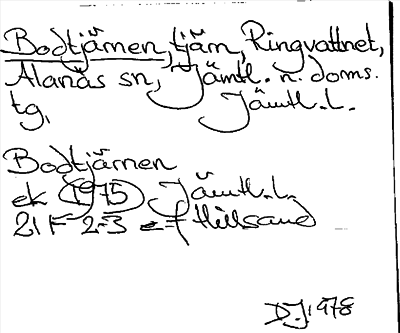 Bodtjärnen, tjärn, Ringvattnet,
Alanäs sn, Jämtl. n. doms.
tg, Jämtl. l.
Bodtjärnen
ek 1975 Jämtl. l.
21 F 2-3 e-f Hillsand
DJ 1978